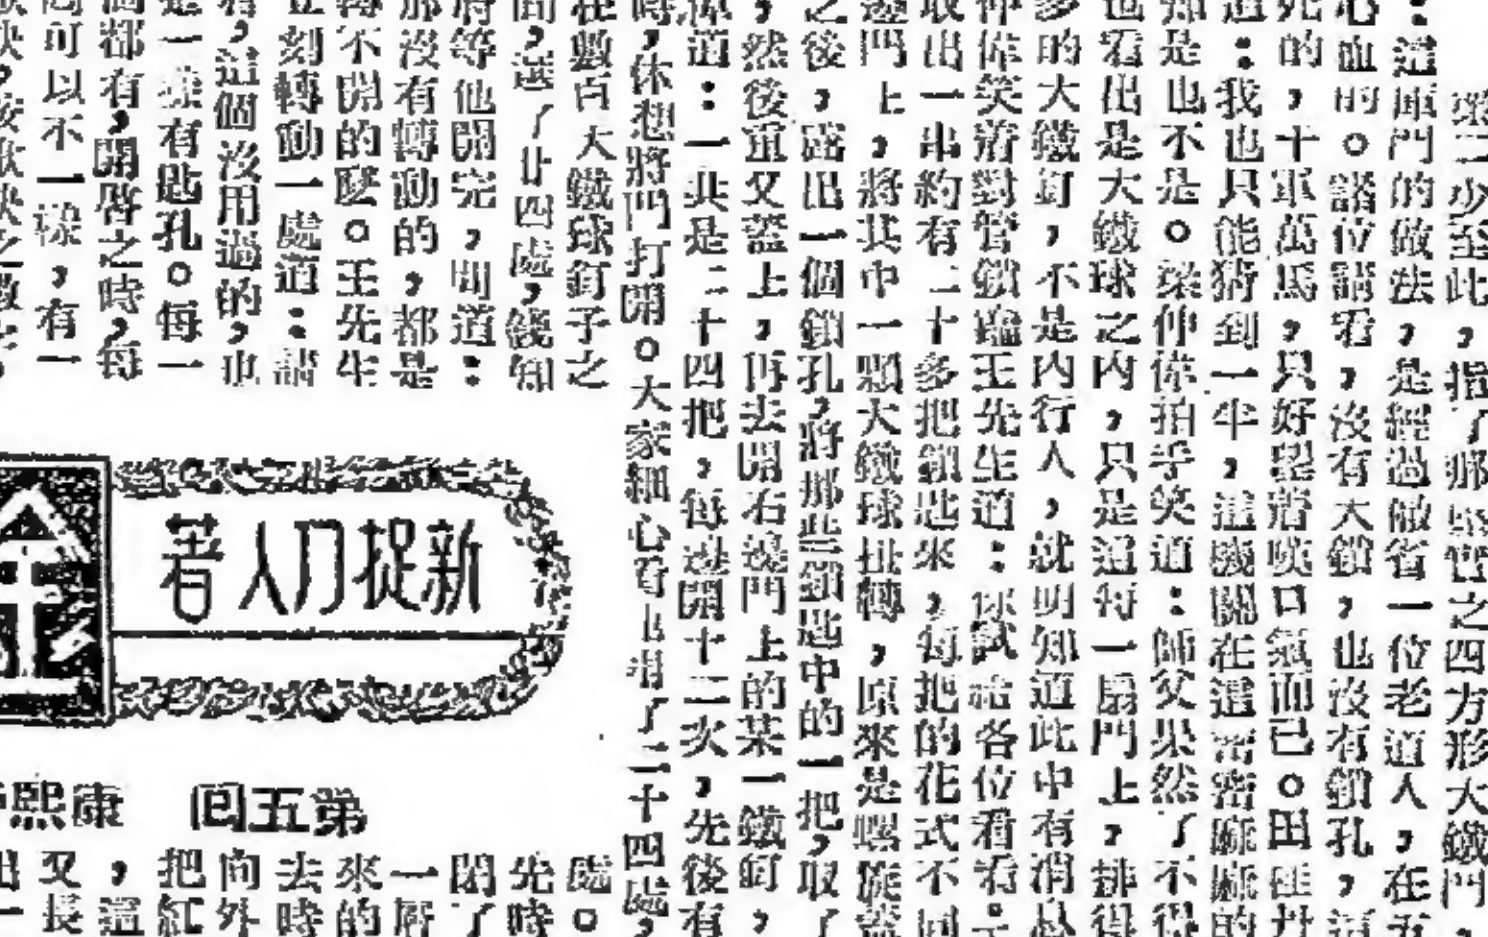 梁二少至此，指了那堅實之四方形大鐵門，
：這庫門的做法，是經過做省一位老道人，在五
心血的。諸位請看，沒有大鎖，也沒有鎖孔，這
死的，十軍萬馬，只好望着嘆口氣而已。田
道：我也只能猜到一半，這機關在這密密麻麻的
知是也不是。梁仲偉拍手笑道：師父果然了不得
也看出是大鐵球之內，只是這每一扇門上，排得
多的大鐵釘，不是內行人，就明知道此中有消息
仲偉笑着對管鎖 王先生道：你試給各位看看。
取出一串約有二十多把鎖匙來，每把的花式不同
邊門上，將其中一顆大鐵球扭轉，原來是螺旋蓋
之後，露出一個鎖孔，將那些鎖匙中的一把，取了
，然後重又蓋上，再去開右邊門上的某一鐵釘，
偉道：一共是二十四把，每邊開十二次，先後有
時，休想將門打開。大家細心看出用了二十四處，
在數百大鐵球釘子之
間，選了廿四處，錢知
將等他開完，問道：
那沒有轉動的，都是
轉不開的麼。王先生
立刻轉動一處道：請
看，這個沒用過的，也
是一樣有匙孔。每一
個都有，開啓之時，每
可以不一樣，有一
新捉刀人著
金
第五回　康熙
處。
先時
閉了
一層
來的
去時
向外
把紅
，這
又長
出一